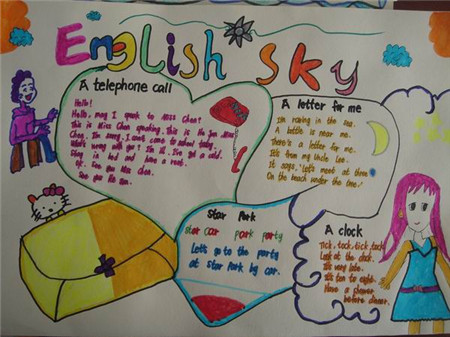 English sky
A telephone call
Hello!
Hello, may I speak to Miss Chen?
This is Miss Chen speaking. This is He Jun. Miss
Chen, I'm I can't come to school today.
What's wrong with you? I'm ill. I've got a cold.
Stay in bed and have a rest.
OK. See you Miss Chen.
See you He Jun.
A letter for me
I'm rowing in the sea.
A bottle is near me.
There's a letter for me.
It's from my Uncle Lee.
It says, "Let's meet at three
On the beach under the tree."
Star Park
star car park party
Let's go to the party
at Star Park by car.
A clock
Tick, tock, tick, tock,
Look at the clock.
It's very late.
It's ten to eight.
Have a shower
before dinner.